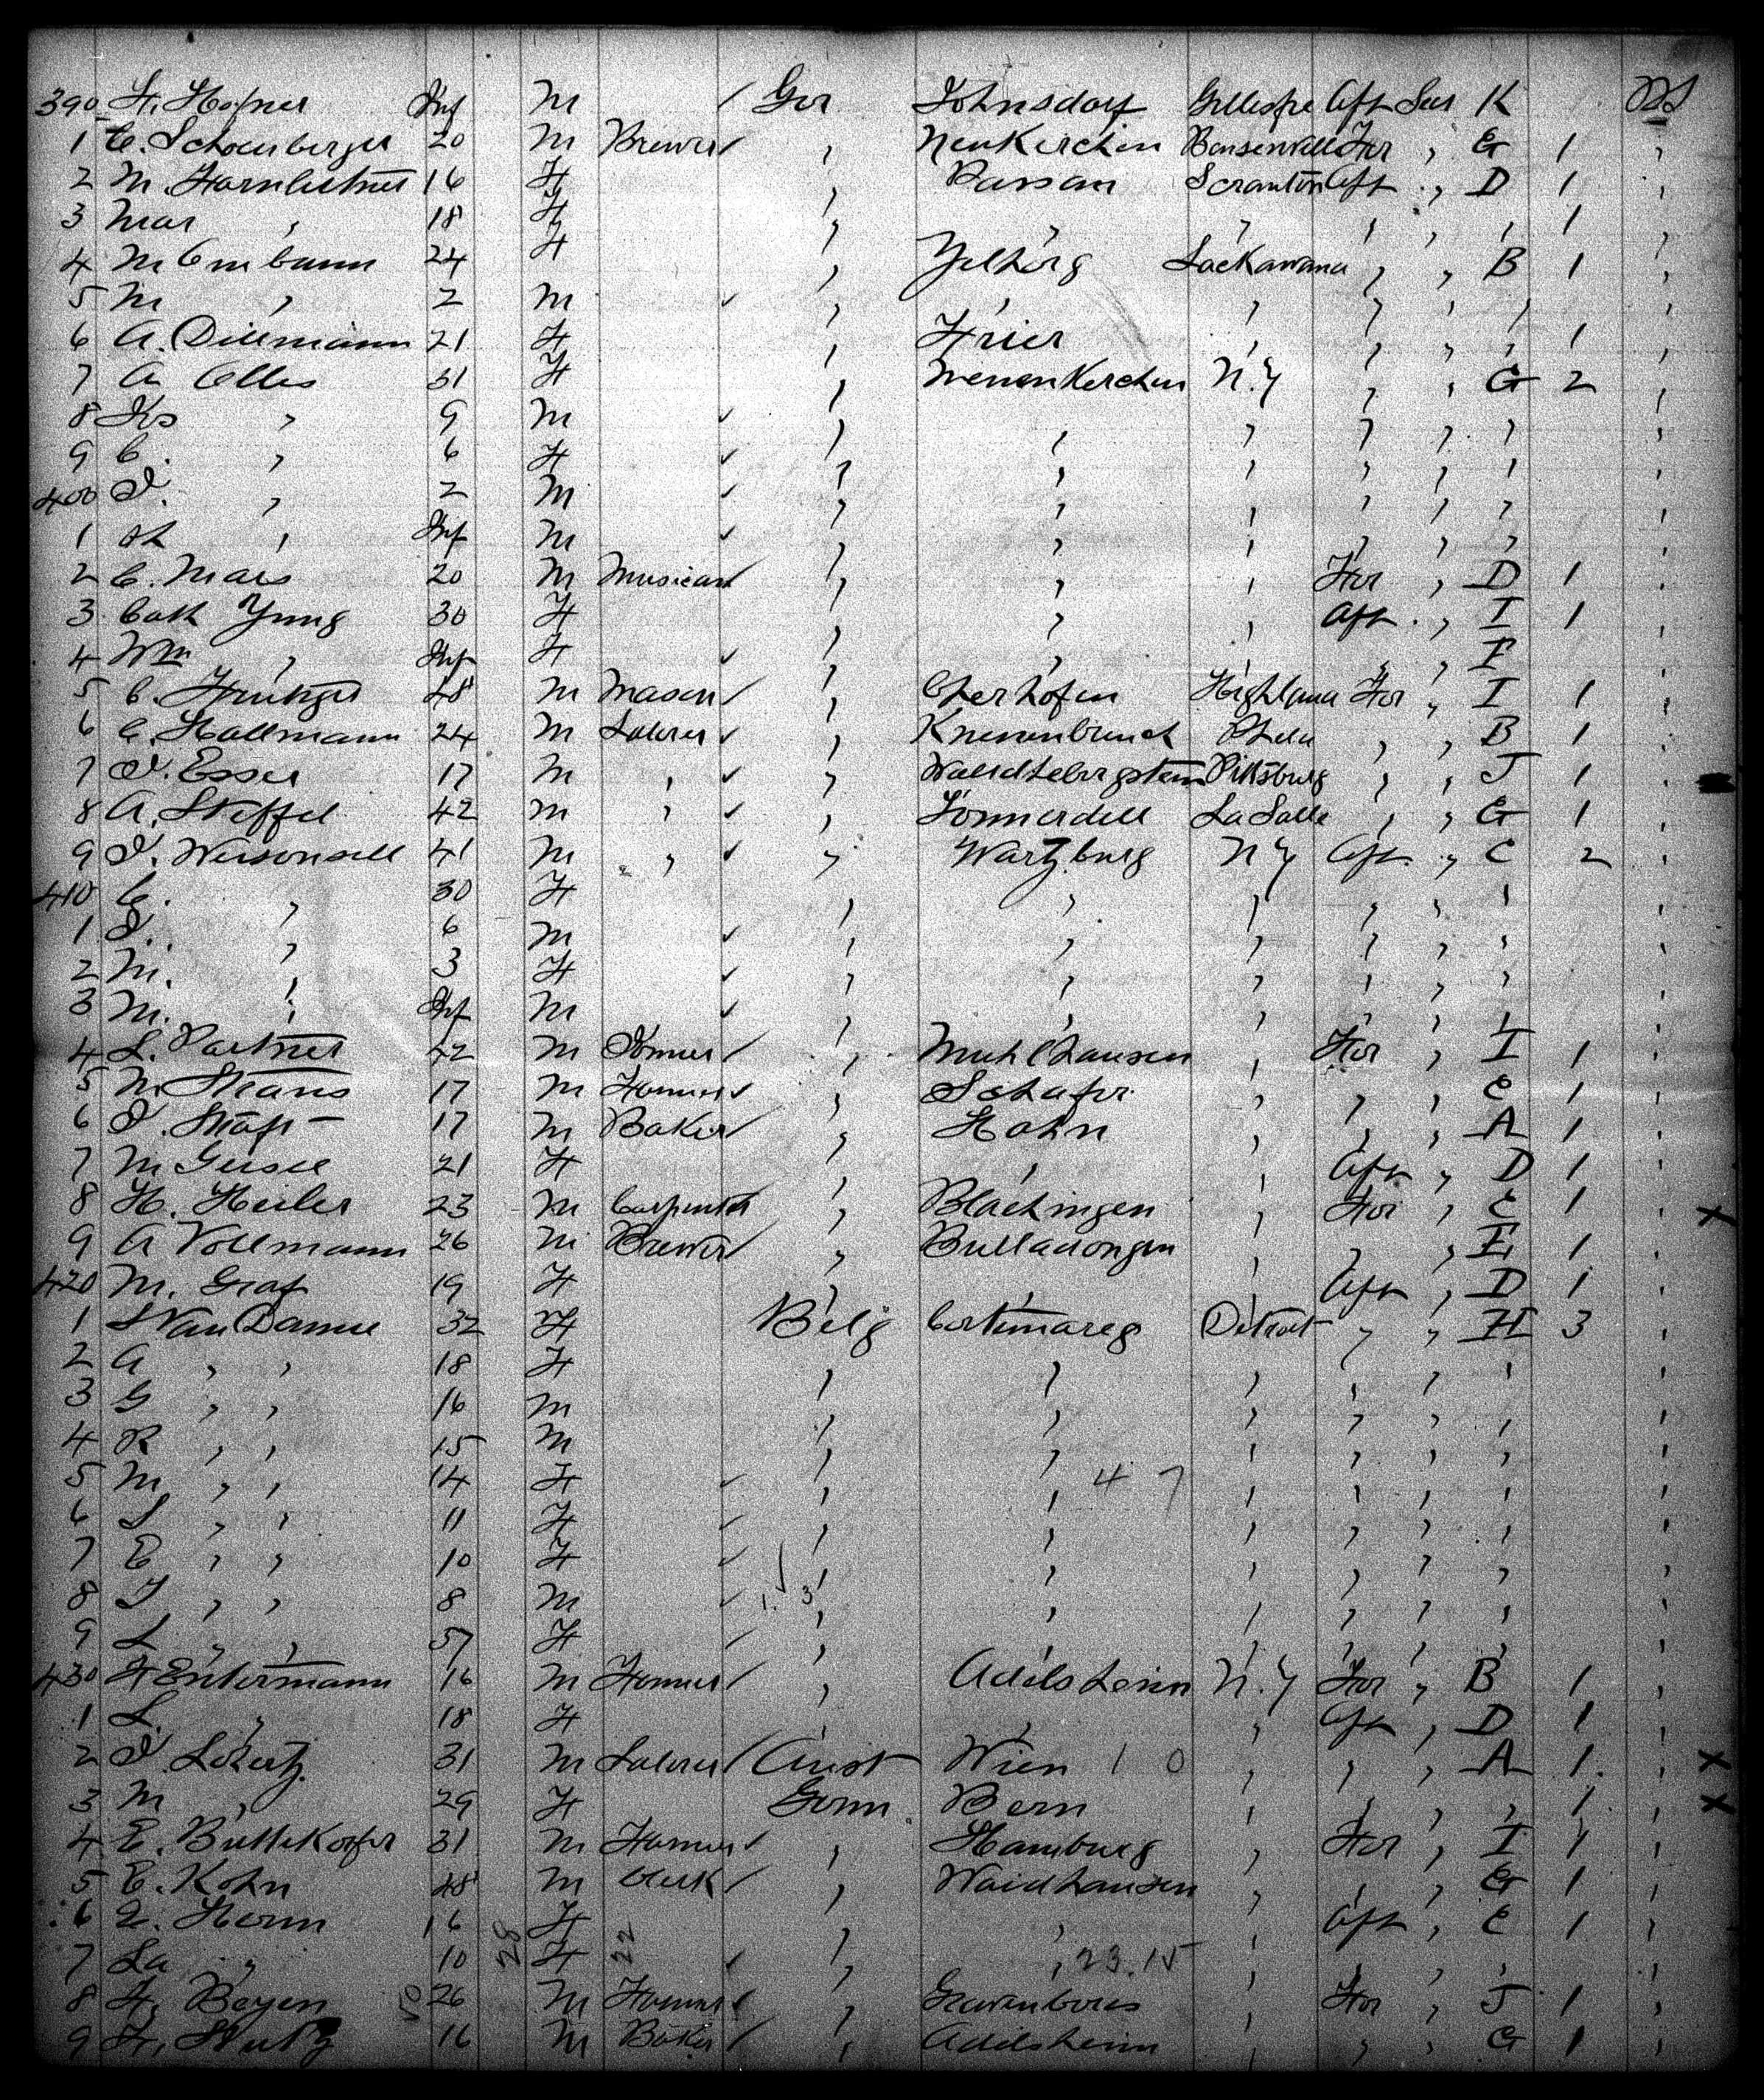 390 F. Hofner Inf M Ger Johnsdorf Gillespie Aft Ster K NS
1 C. Schoenberger 20 M Brewer , Neukirchen Bensenville For , G 1 ,
2 M. 16 F , Passau Scranton Aft , D 1 ,
3 Mar , 18 F , , , , , , 1 ,
4 M 24 F , Lackawana , , B 1 ,
5 M , 2 M , , , , , , ,
6 A. Dillmann 21 F , Trier , , , , 1 ,
7 A Elles 31 F , N.Y , , G 2 ,
8 , 9 M , , , , , , ,
9 C. , 6 F , , , , , , ,
400 J. , 2 M , , , , , , ,
1 , Inf M , , , , , , ,
2 C. Mars 20 M Musician , , , For , D 1 ,
3 Cath Yung 30 F , , , Aft , I 1 ,
4 Wm , Inf F , , , , , F ,
5 C. 48 M Mason , Oberhofen Highland For , I 1 ,
6 C. Hallmann 24 M Laborer , Phila , , B 1 ,
7 J. Esser 17 M , , Pittsburg , , J 1 ,
8 A. Steffel 42 M , , Sonnerdell La Salle , , G 1 ,
9 J. 41 M , , Wartzburg N Y Aft , C 2 ,
410 C. , 30 F , , , , , , ,
1 J. , 6 M , , , , , , ,
2 M. , 3 F , , , , , , ,
3 M. , Inf M , , , , , , ,
4 L. Partner 42 M , Muhlhausen , For , I 1 ,
5 M. Straus 17 M Farmer , Schafer , , , C 1 ,
6 J. 17 M Baker , Hohn , , , A 1 ,
7 M 21 F , , , Aft , D 1 ,
8 H. Heiler 23 M Carpenter , Blachingen , For , C 1 , x
9 A Vollmann 26 M Brewer , , , , E 1 ,
420 M. Graf 19 F , , , Aft , D 1 ,
1 Van Damme 32 F Belg Cortemareg Detroit , , H 3 ,
2 A , , 18 F , , , , , , ,
3 G , , 16 M , , , , , , ,
4 R , , 15 M , , , , , , ,
5 M , , 14 F , , 4 7 , , , , ,
6 S , , 11 F , , , , , , ,
7 E , , 10 F , , , , , , ,
8 J , , 8 M 1. 3 , , , , , , ,
9 L , , 57 F , , , , , , ,
430 F Entermann 16 M Farmer , Adelsheim N.Y For , B 1 ,
1 L. , 18 F , , , Aft , D 1 ,
2 J. 31 M Laborer Aust Wien 1 0 , , , A 1. , x
3 M , 29 F Germ. Bern , , , , 1 , x
4 E. Buttikofer 31 M Farmer , Hamburg , For , I 1 ,
5 E. Kohn 48 M Clerk , Waidhausen , , , G 1 ,
6 Herm 16 28 F 22 , , , Aft , C 1 ,
7 La , 10 F , , 23.15 , , , , ,
8 F. Beyen 26 M Farmer , , For , J 1 ,
9 F. Stutz 16 M Baker , Adelsheim , , , G 1 ,